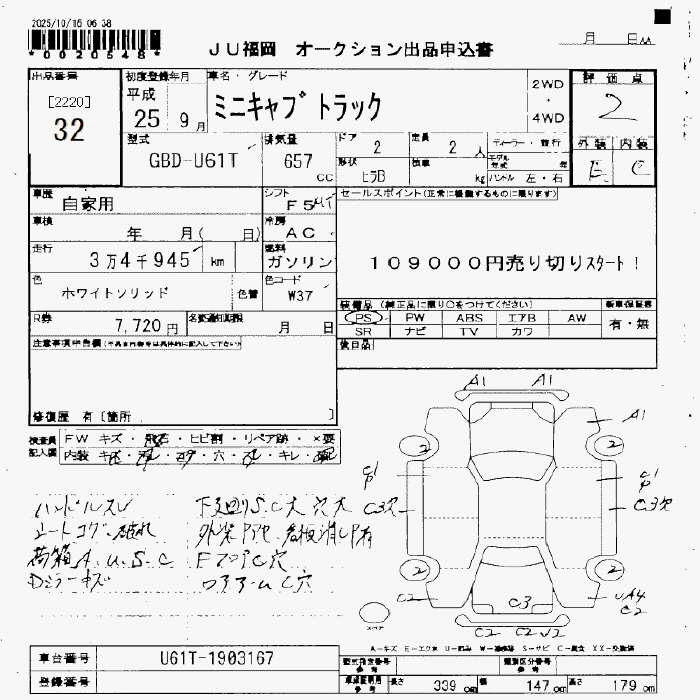 2025/10/16 06 38
*0020548*
JU福岡 オークション出品申込書
月 日
出品番号
[2220]
32
初度登録年月
平成
25 9 月
車名・グレード
ミニキャブトラック
2WD
・
4WD
評価点
2
型式
GBD-U61T
排気量
657
cc
ドア
2
定員
2 人
形状
ヒラB
積車
kg
ディーラー・並行
モデル年式 年
ハンドル 左・右
外装 内装
E C
車歴
自家用
シフト
F5
セールスポイント(正常に機能するものに限ります)
109000円売り切りスタート!
車検
年 月( 日)
冷房
AC
走行
3万4千945 km
燃料
ガソリン
色
ホワイトソリッド
色替
色コード
W37
装備品(純正品に限り○をつけてください)
PS PW ABS エアB AW
SR ナビ TV カワ
新車保証書
有・無
R券
7,720 円
名変通知期限
月 日
後日品
注意事項申告欄
修復歴 有〔箇所 〕
検査員記入欄
FW キズ・飛石・ヒビ割・リペア跡・×要
内装
ハンドルスレ
下廻りS.C大 穴大
荷箱A.U.S.C
FフロアC穴
Dミラーキズ
A1 A1
A1
2 2
C1
P
C1
P
C3穴
C3穴
2 2
C2
UA4
C2
C3
C2 C2 U2
スペア
A-キズ E-エクボ U-凹み W-補修跡 S-サビ C-腐食 XX-交換済
車台番号
U61T-1903167
登録番号
型式指定番号
参考
類別区分番号
参考
車検証明用
参考
長さ 339 cm
幅 147 cm
高さ 179 cm